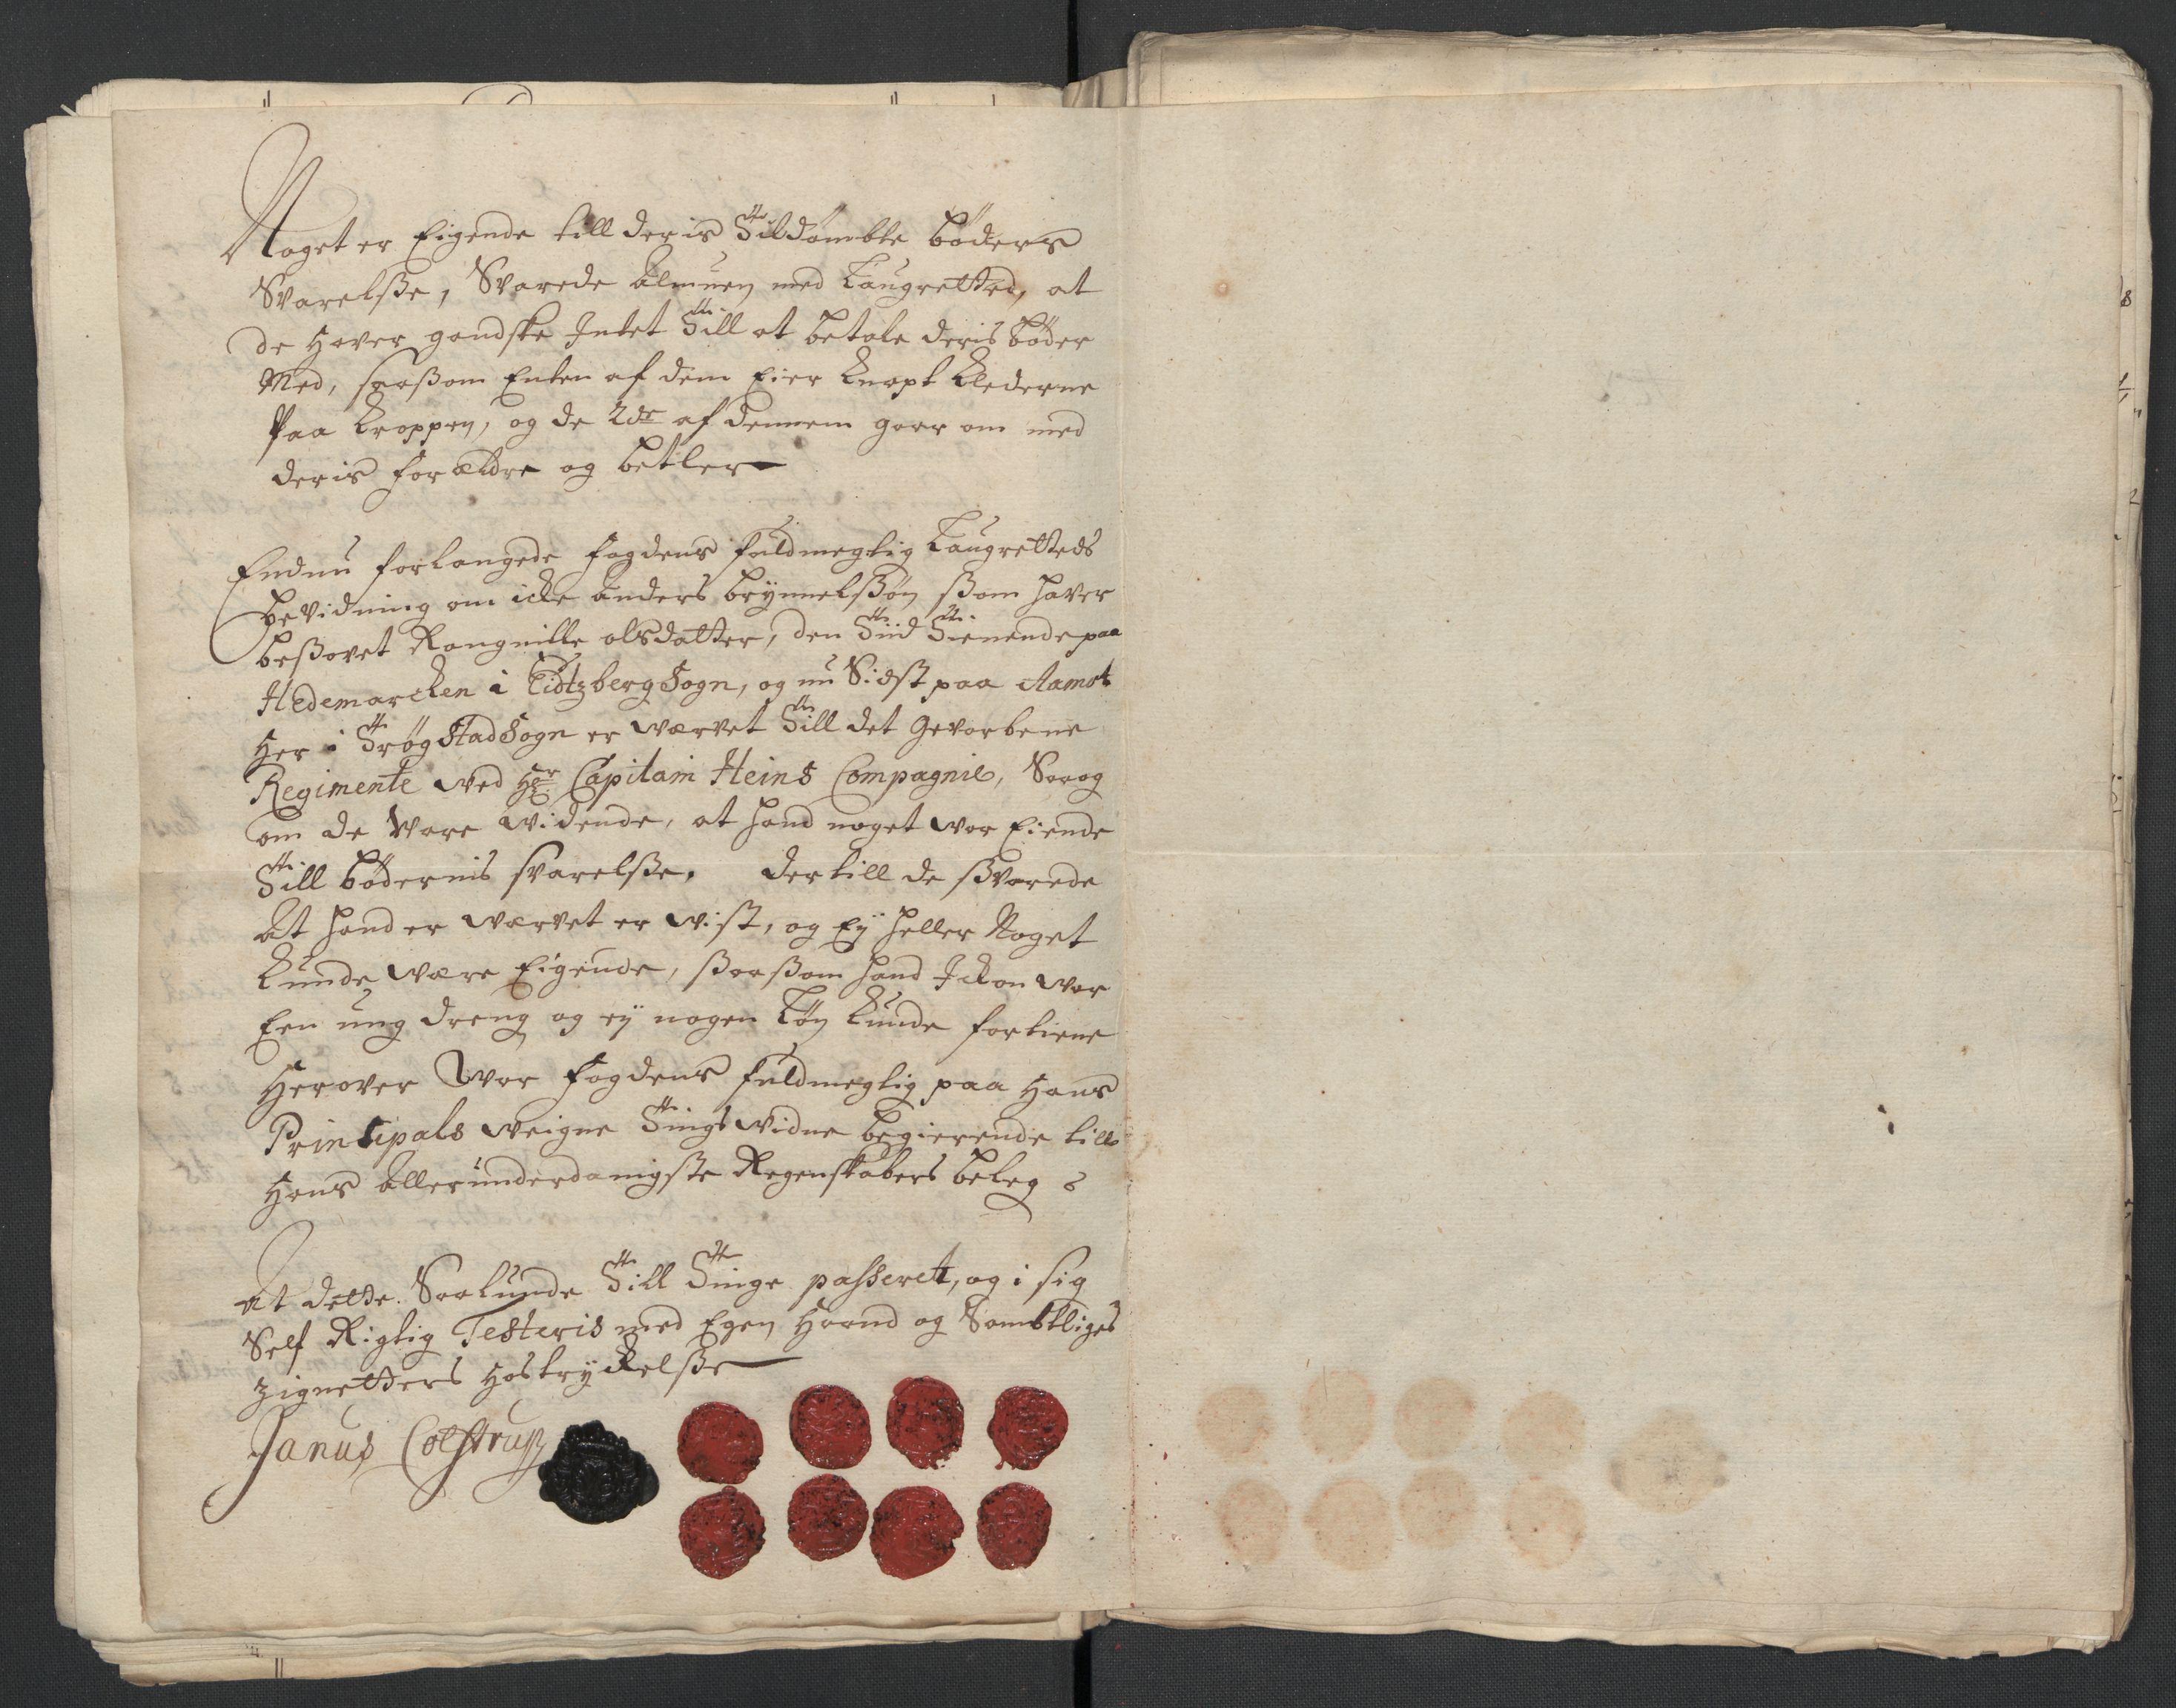 Noget er Eigende till deris Tildømbte bøders
Svarelsse, Svarede Almuen med Laugretted, at
de Haver gandske Intet Till at betale deris bøder
Med, saassom Enten af dem Eier knapt klederne
Paa kroppen, og de 2de af dennem gaar om med
deris forældre og betler
Endnu forlangede fogdens fuldmegtig Laugretteds
bevidning om icke Anders brynnelssøn ssom haver
bessovet Rangnille olsdatter, den Tiid Tienende paa
Hedemarcken i Eidtzberg Sogn, og nu Sidst paa Aamot
Her i Trøgstad Sogn er værvet Till det Gevorbene
Regimente ved Hr Capitain Heins Compagnie, Saa og
om de Vare vidende, at hand noget var Eiende
Till bødernis svarelsse. dertill de ssvarede
At hand er værvet er vist, og Ey heller Noget
kunde være Eigende, ssaassom hand Ickon var
Een ung dreng og ey nogen Løn kunde fortiene
Herover var fogdens fuldmegtig paa Hans
Principals veigne Tings vidne begierende till
Hans Allerunderdanigste Regenskabers beleg
At dette Saalunde Till Tinge passeret, og i sig
Self Rigtig Testeris med Egen Haand og Sambtliges
Zignetters Hostryckelsse
Janus Colstrup